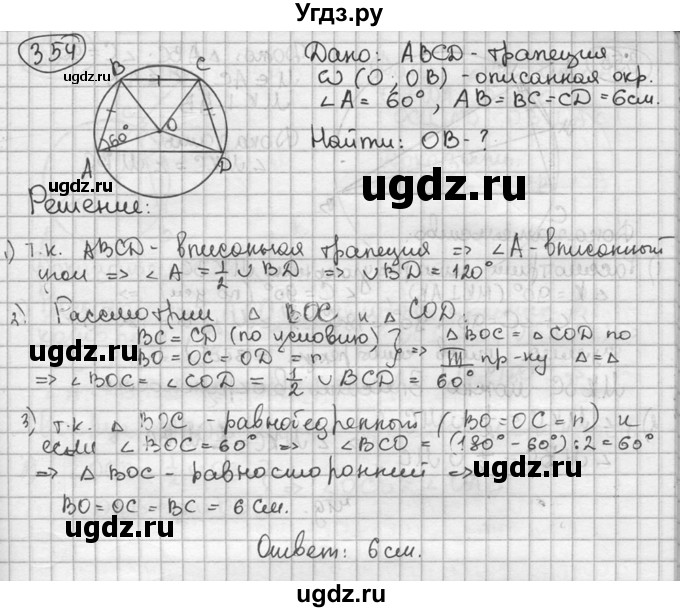 Угдз.ру
354
Дано: ABCD - трапеция
ω (O, OB) - описанная окр.
∠A = 60°, AB = BC = CD = 6см.
Найти: OB - ?
B C
60° O
A D
ugdz.ru
ugdz.ru
ugdz.ru
ugdz.ru
Решение:
1) т.к. ABCD - вписанная трапеция => ∠A - вписанный
угол => ∠A = 1/2 ∪ BD => ∪BD = 120°
ugdz.ru
ugdz.ru
2) Рассмотрим △ BOC и △ COD.
BC = CD (по условию) } △ BOC = △ COD по
BO = OC = OD = r } => III пр-ку △ = △
=> ∠BOC = ∠COD = 1/2 ∪ BCD = 60°.
ugdz.ru
ugdz.ru
3) т.к. △ BOC - равнобедренный (BO = OC = r) и
если ∠BOC = 60° => ∠BCO = (180° - 60°) : 2 = 60°
=> △ BOC - равносторонний =>
ugdz.ru
BO = OC = BC = 6 см.
ugdz.ru
ugdz.ru
Ответ: 6 см.
ugdz.ru
ugdz.ru
ugdz.ru